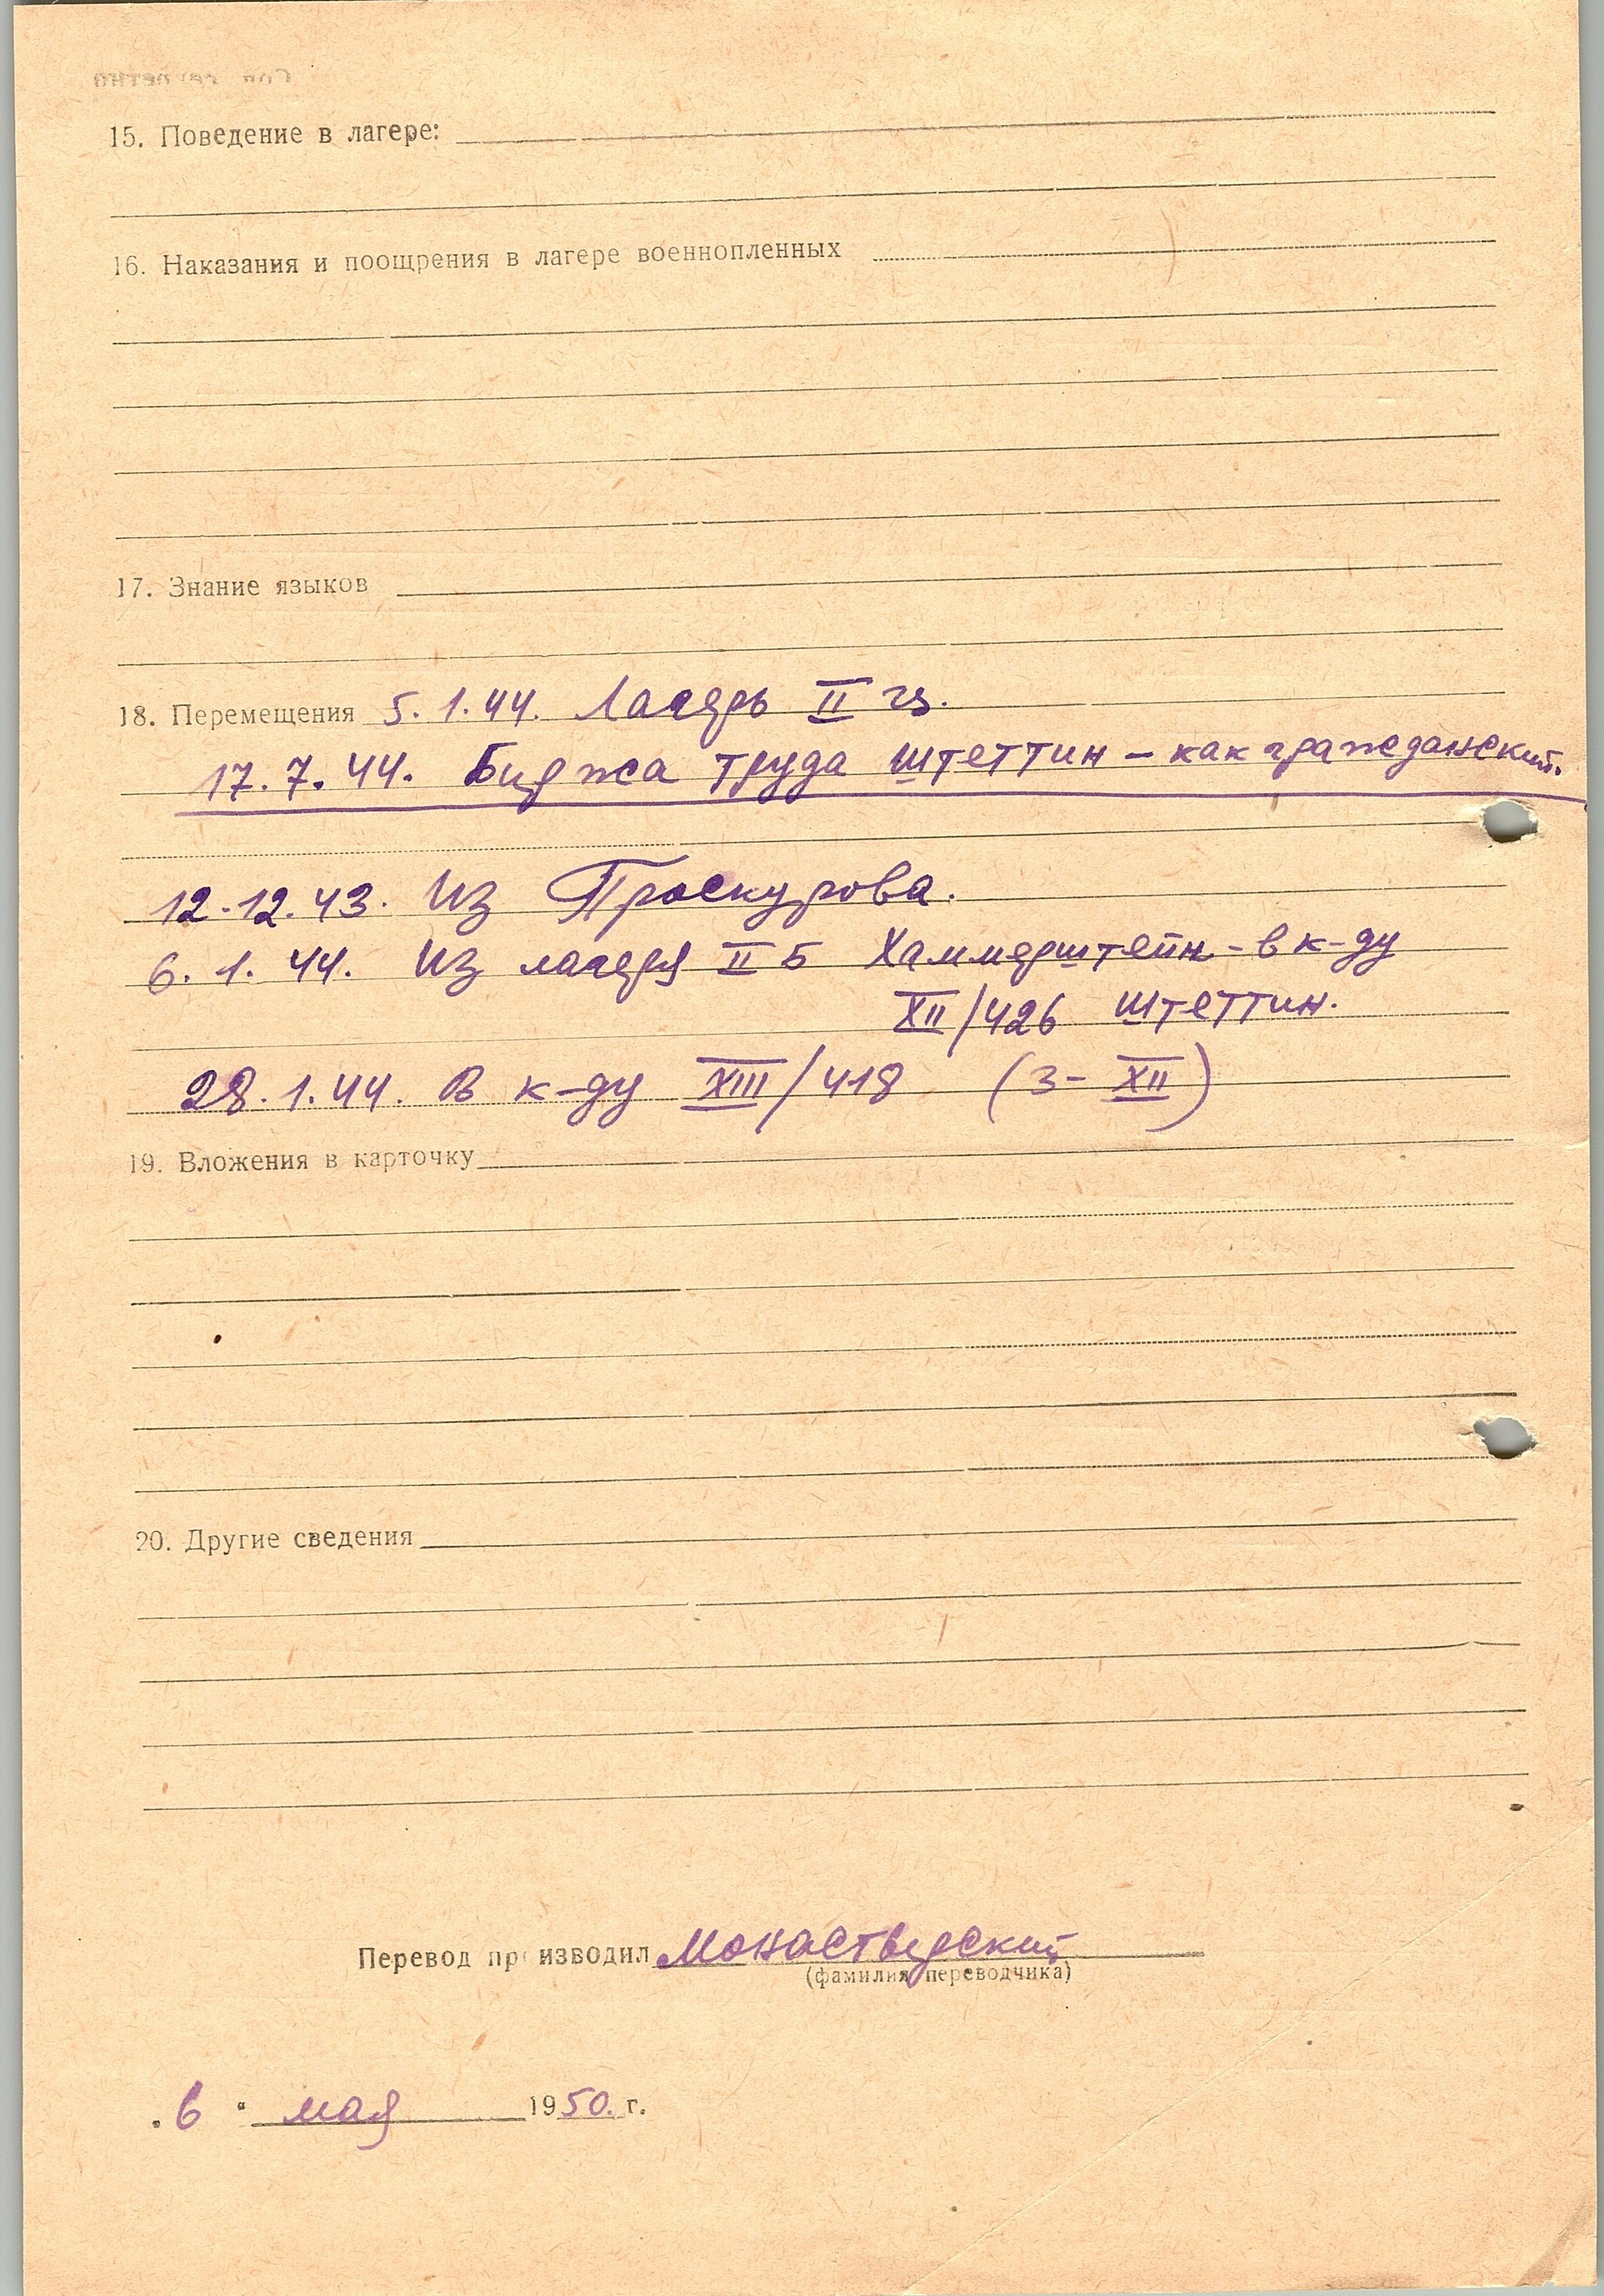 15. Поведение в лагере:
16. Наказания и поощрения в лагере военнопленных
17. Знание языков
18. Перемещения 5.1.44. Лагерь II
17.7.44. Биржа труда Штеттин – как гражданский.
12.12.43. Из Проскурова.
6.1.44. Из лагеря II Б Хаммерштейн – в к-ду
XII/426 Штеттин.
28.1.44. В к-ду XIII/418 (3-XII)
19. Вложения в карточку
20. Другие сведения
Перевод производил Монастырский
(фамилия переводчика)
"6" мая 1950. г.